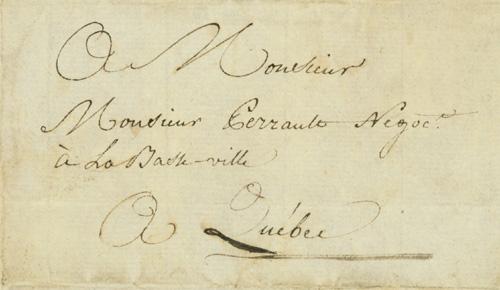 A Monsieur
Monsieur Perrault Negoc.t
à La Basse-ville
A Québec